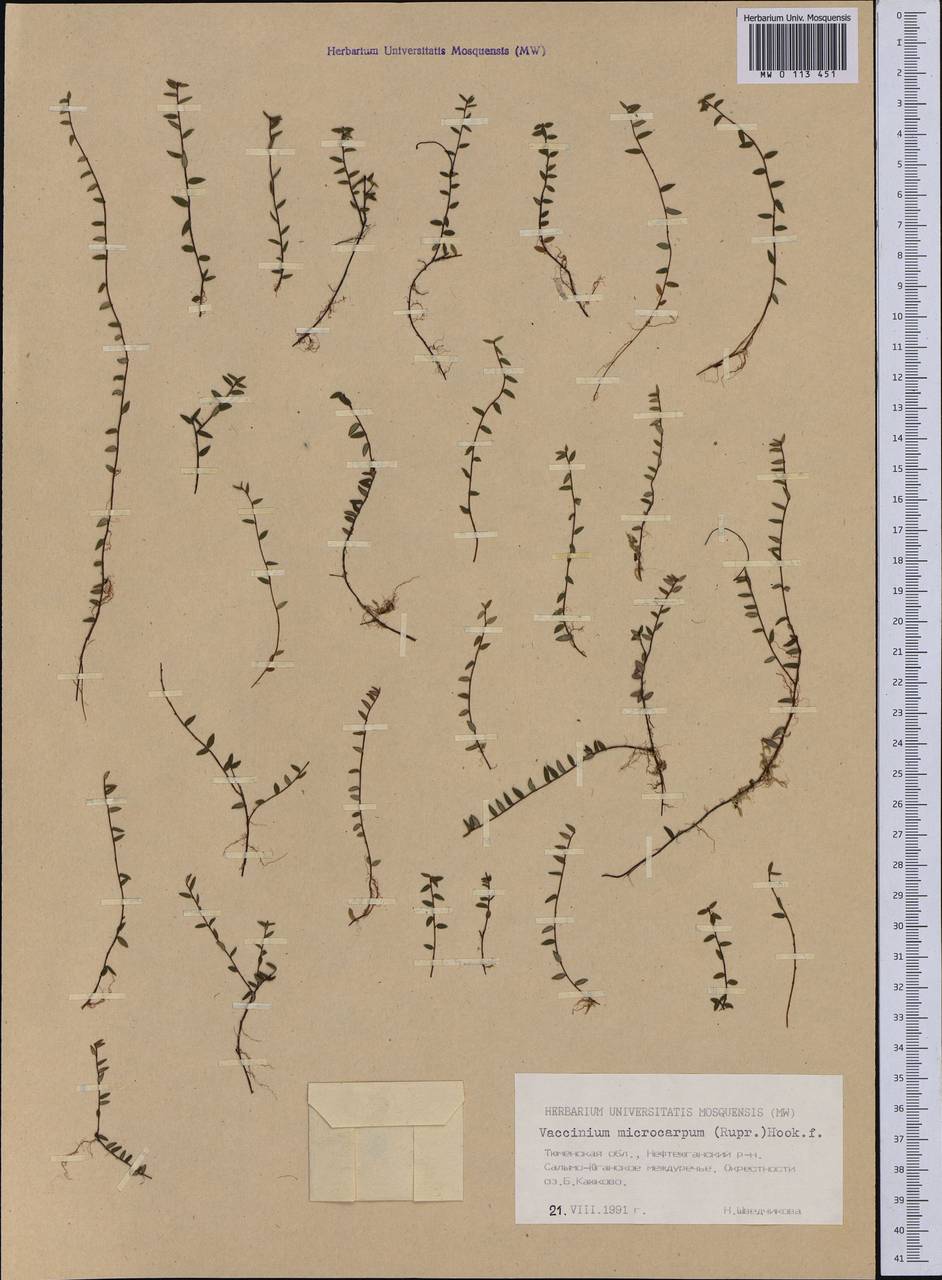 Herbarium Univ. Mosquensis
MW 0 113 451
Herbarium Universitatis Mosquensis (MW)
HERBARIUM UNIVERSITATIS MOSQUENSIS (MW)
Vaccinium microcarpum (Rupr.)Hook.f.
Тюменская обл., Нефтеюганский р-н.
Салымо-Юганское междуречье. Окрестности
оз.Б.Каюково.
21.VIII.1991 г. Н.Шведчикова
0
1
2
3
4
5
6
7
8
9
10
11
12
13
14
15
16
17
18
19
20
21
22
23
24
25
26
27
28
29
30
31
32
33
34
35
36
37
38
39
40
41